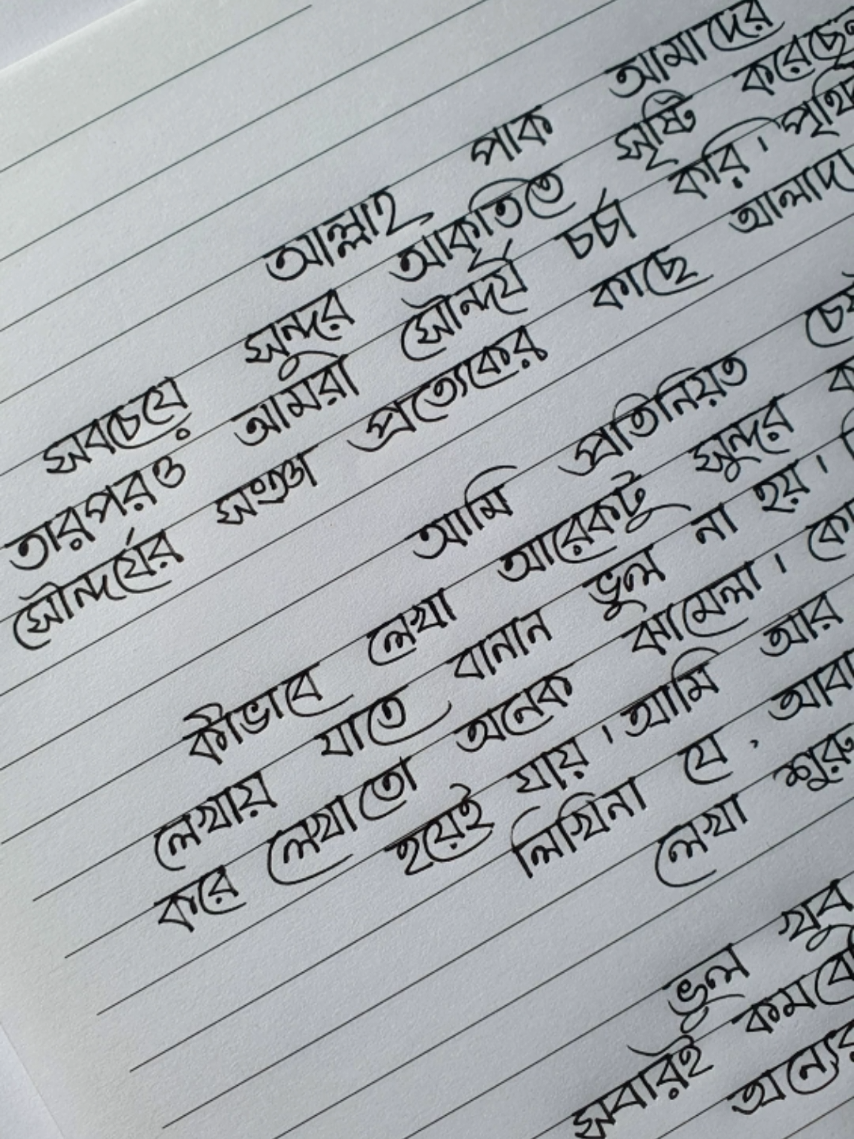 আল্লাহ পাক আমাদের
সবচেয়ে সুন্দর আকৃতিতে সৃষ্টি করেছেন
তারপরও আমরা সৌন্দর্য চর্চা করি। পৃথি
সৌন্দর্যের সংজ্ঞা প্রত্যেকের কাছে আলাদা
আমি প্রতিনিয়ত
কীভাবে লেখা আরেকটু সুন্দর
লেখায় যাতে বানান ভুল না হয়।
করে লেখাতো অনেক ঝামেলা।
হয়েই যায়। আমি আর
লিখিনা যে, আবা
লেখা শুরু
ভুল খুব
সবারই কমবে
অন্যের